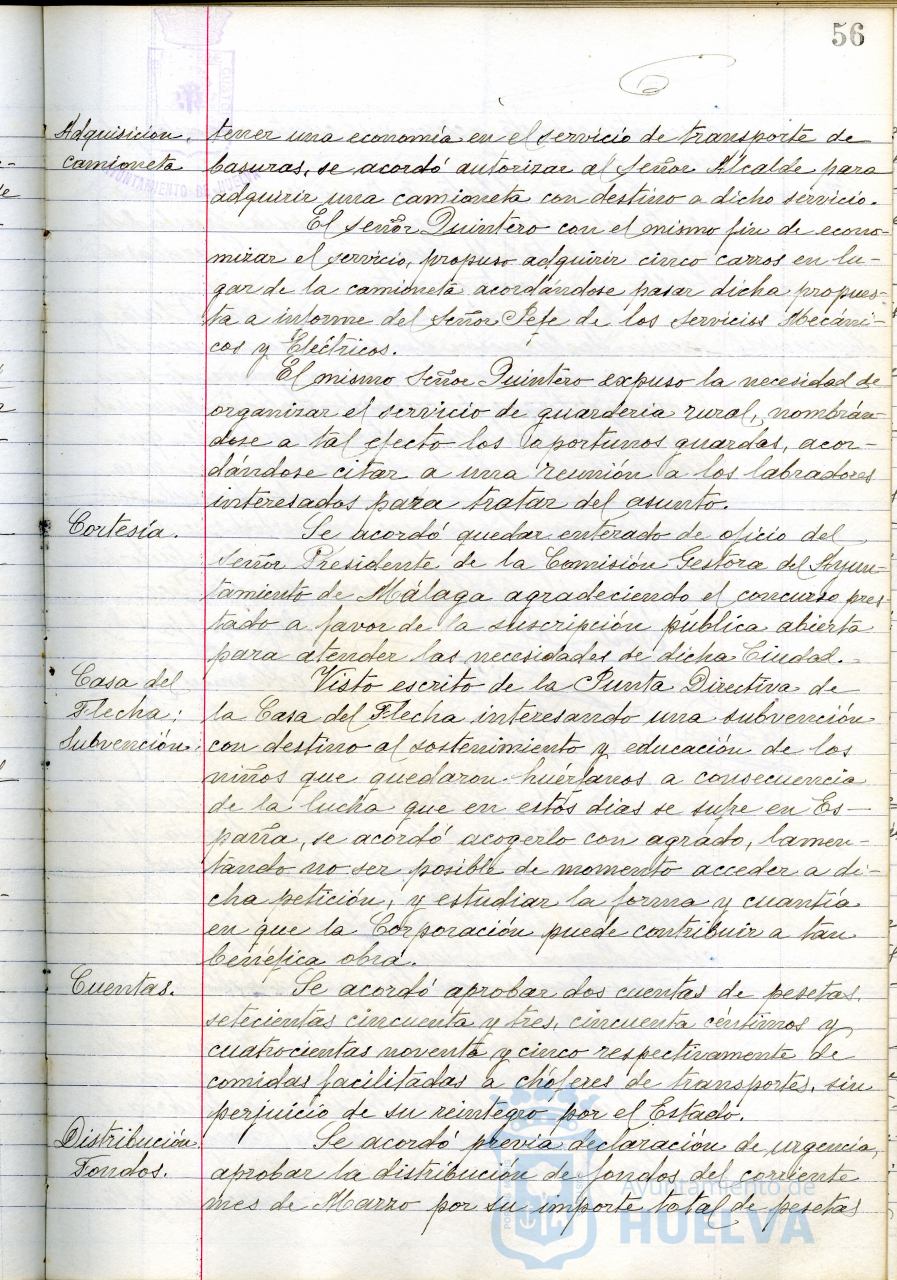 56
Adquisicion. tener una economía en el servicio de transporte de
camioneta basuras, se acordó autorizar al Señor Alcalde para
adquirir una camioneta con destino a dicho servicio.
El señor Quintero con el mismo fin de econo-
mizar el servicio, propuso adquirir cinco carros en lu-
gar de la camioneta acordándose pasar dicha propues-
ta a informe del Señor Jefe de los Servicios Mecáni-
cos y Eléctricos.
El mismo Señor Quintero expuso la necesidad de
organizar el servicio de guarderia rural, nombrán-
dose a tal efecto los oportunos guardas, acor-
dándose citar a una reunión a los labradores
interesados para tratar del asunto.
Cortesía. Se acordó quedar enterado de oficio del
Señor Presidente de la Comisión Gestora del Ayun-
tamiento de Málaga agradeciendo el concurso pres-
tado a favor de la suscripción pública abierta
para atender las necesidades de dicha Ciudad.
Casa del Visto escrito de la Junta Directiva de
Flecha: la Casa del Flecha interesando una subvención
Subvención. con destino al sostenimiento y educación de los
niños que quedaron huérfanos a consecuencia
de la lucha que en estos dias se sufre en Es-
paña, se acordó acogerlo con agrado, lamen-
tando no ser posible de momento acceder a di-
cha petición, y estudiar la forma y cuantía
en que la Corporación puede contribuir a tan
benéfica obra.
Cuentas. Se acordó aprobar dos cuentas de pesetas
setecientas cincuenta y tres, cincuenta céntimos y
cuatrocientas noventa y cinco respectivamente de
comidas facilitadas a chóferes de transportes, sin
perjuicio de su reintegro por el Estado.
Distribución Se acordó previa declaración de urgencia,
Fondos. aprobar la distribución de fondos del corriente
mes de Marzo por su importe total de pesetas
Ayuntamiento de
HUELVA